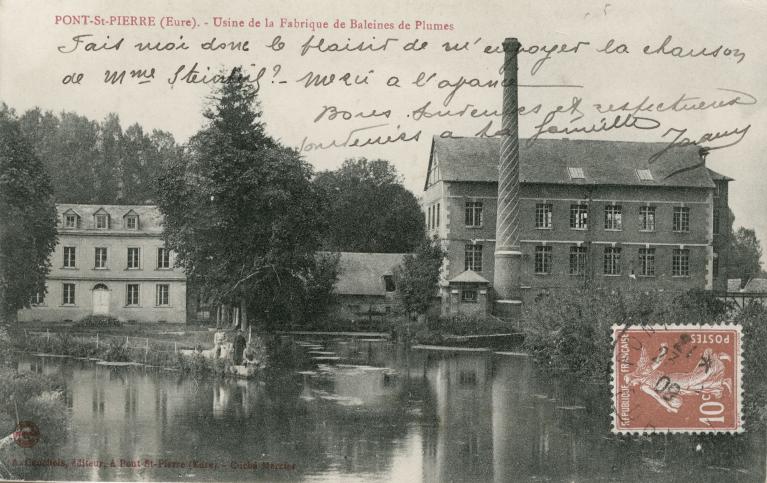 PONT-St-PIERRE (Eure). - Usine de la Fabrique de Baleines de Plumes
Fais moi donc le plaisir de m'envoyer la chanson
de Mme ? - Merci a l'avance
Bons souvenirs et respectueux
souvenirs a ta famille
REPUBLIQUE FRANÇAISE
10c
& Cauchois, éditeur, à Pont-St-Pierre (Eure). - Cliché Mercier